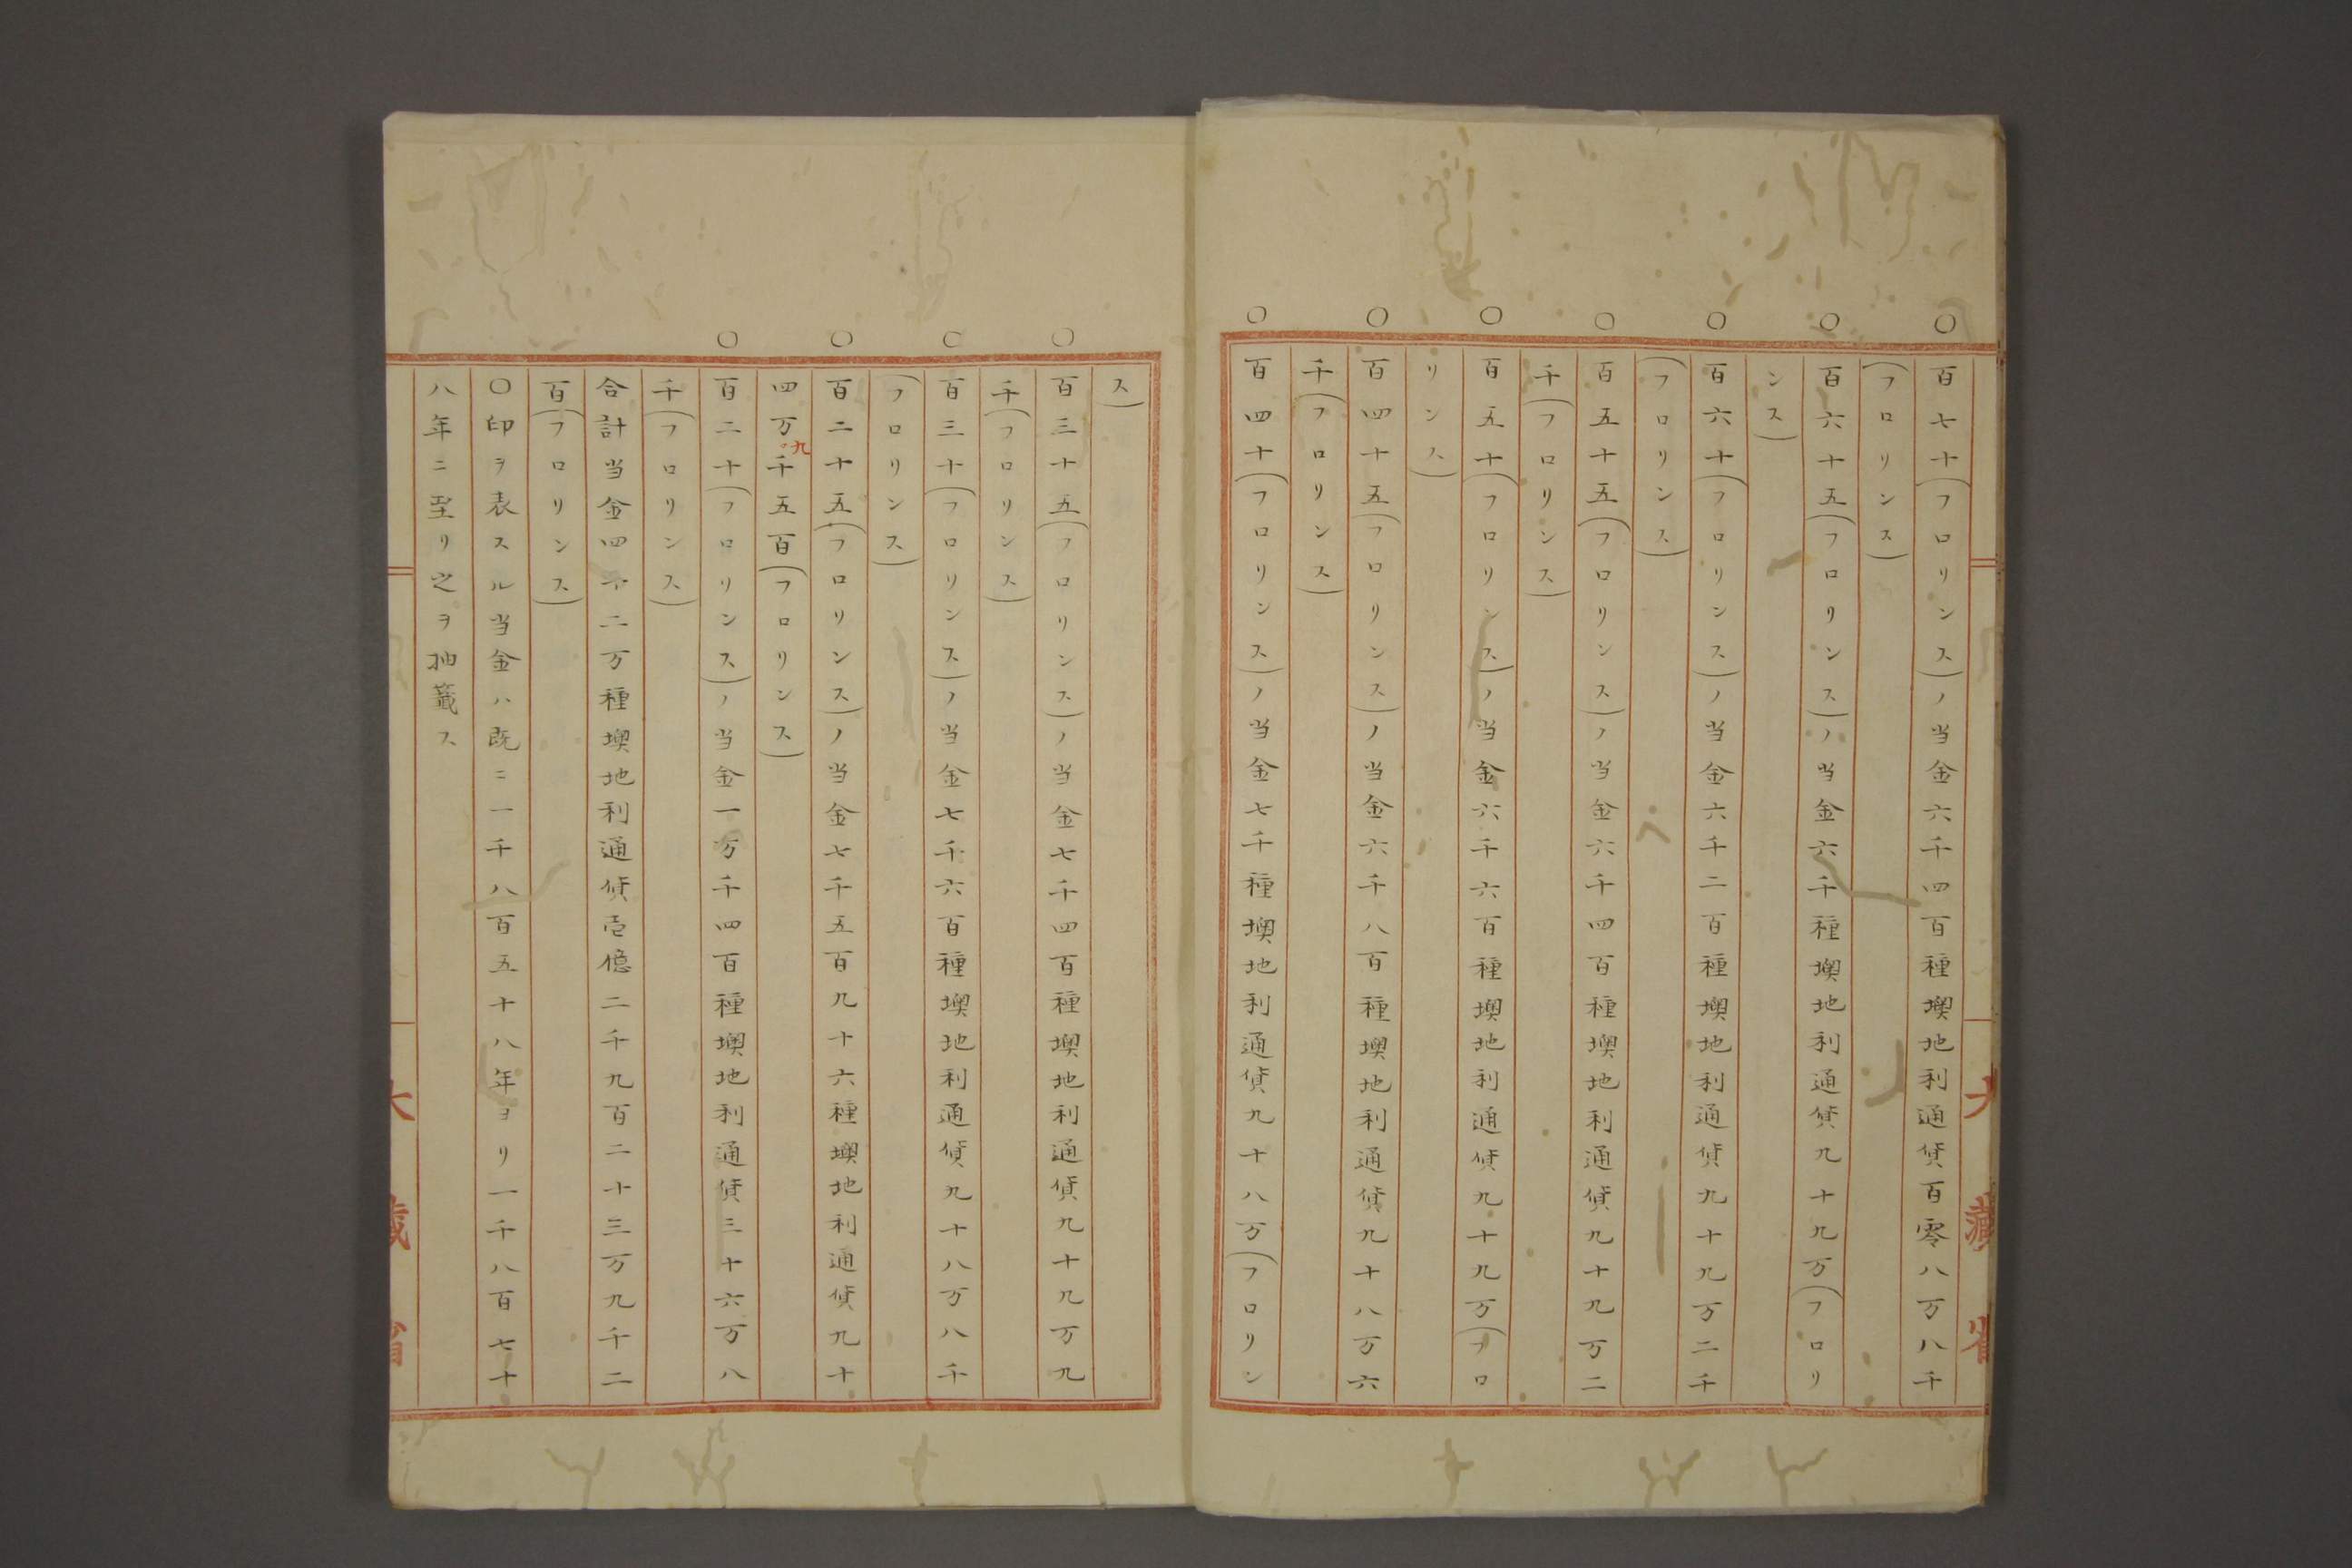 大藏省
○百七十(フロリンス)ノ当金六千四百種墺地利通貨百零八万八千
(フロリンス)
○百六十五(フロリンス)ノ当金六千種墺地利通貨九十九万(フロリ
ンス)
○百六十(フロリンス)ノ当金六千二百種墺地利通貨九十九万二千
(フロリンス)
○百五十五(フロリンス)ノ当金六千四百種墺地利通貨九十九万二
千(フロリンス)
○百五十(フロリンス)ノ当金六千六百種墺地利通貨九十九万(フロ
リンス)
○百四十五(フロリンス)ノ当金六千八百種墺地利通貨九十八万六
千(フロリンス)
○百四十(フロリンス)ノ当金七千種墺地利通貨九十八万(フロリン
ス)
○百三十五(フロリンス)ノ当金七千四百種墺地利通貨九十九万九
千(フロリンス)
○百三十(フロリンス)ノ当金七千六百種墺地利通貨九十八万八千
(フロリンス)
○百二十五(フロリンス)ノ当金七千五百九十六種墺地利通貨九十
四万九千五百(フロリンス)
○百二十(フロリンス)ノ当金一万千四百種墺地利通貨三十六万八
千(フロリンス)
合計当金四十二万種墺地利通貨壱億二千九百二十三万九千二
百(フロリンス)
○印ヲ表スル当金ハ既ニ一千八百五十八年ヨリ一千八百七十
八年ニ至リ之ヲ抽籤ス
大藏省